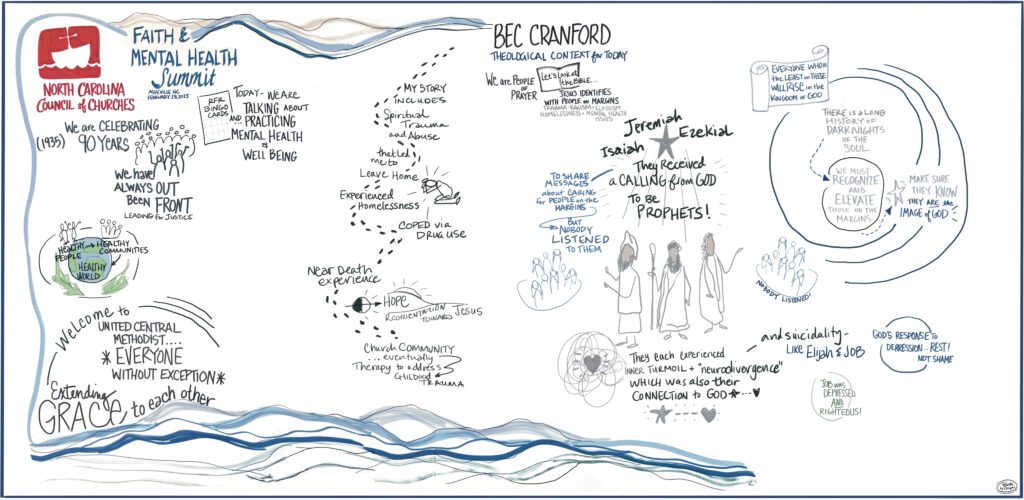 NORTH CAROLINA
COUNCIL of CHURCHES
FAITH &
MENTAL HEALTH
Summit
ASHEVILLE NC
FEBRUARY 28, 2025
(1935)
We are CELEBRATING
90 YEARS
We have
ALWAYS OUT
Been FRONT
LEADING for JUSTICE
RFR
BINGO
CARDS
TODAY- WE ARE
TALKING ABOUT
...AND
PRACTICING
MENTAL HEALTH
&
WELL BEING
HEALTHY
PEOPLE
HEALTHY
COMMUNITIES
HEALTHY
WORLD
Welcome to
UNITED CENTRAL
METHODIST....
* EVERYONE
WITHOUT EXCEPTION *
Extending
GRACE to each other
MY STORY
INCLUDES
Spiritual
Trauma
and Abuse
that led
me to
Leave Home
Experienced
Homelessness
COPED via
DRUG USE
Near Death
experience
HOPE
REORIENTATION
TOWARD
JESUS
Church COMMUNITY
... eventually
Therapy to address
CHILDHOOD
TRAUMA
BEC CRANFORD
THEOLOGICAL CONTEXT for TODAY
We are PEOPLE
of
PRAYER
Let's Look at
the BIBLE...
JESUS IDENTIFIES
WITH PEOPLE ON MARGINS
TRAUMA - RACISM - CLASSISM
HOMELESSNESS - MENTAL HEALTH
ISSUES
Jeremiah
Isaiah
Ezekial
They Received
a CALLING from GOD
To BE
PROPHETS!
TO SHARE
MESSAGES
about CARING
for PEOPLE on the
MARGINS
BUT
NOBODY
LISTENED
TO THEM
NOBODY LISTENED!
They each experienced
INNER TURMOIL + "neurodivergence"
WHICH was also their
CONNECTION to GOD
and suicidality-
LIKE Elijah & JOB
EVERYONE WHO IS
the LEAST of THESE
WILL RISE in the
KINGDOM of GOD
THERE IS A LONG
HISTORY OF
DARK NIGHTS
OF THE
SOUL
WE MUST
RECOGNIZE
AND
ELEVATE
THOSE ON THE
MARGINS
MAKE SURE
THEY KNOW
THEY ARE the
IMAGE of GOD
GOD'S RESPONSE TO
DEPRESSION... REST!
NOT SHAME
JOB WAS
DEPRESSED
AND
RIGHTEOUS!